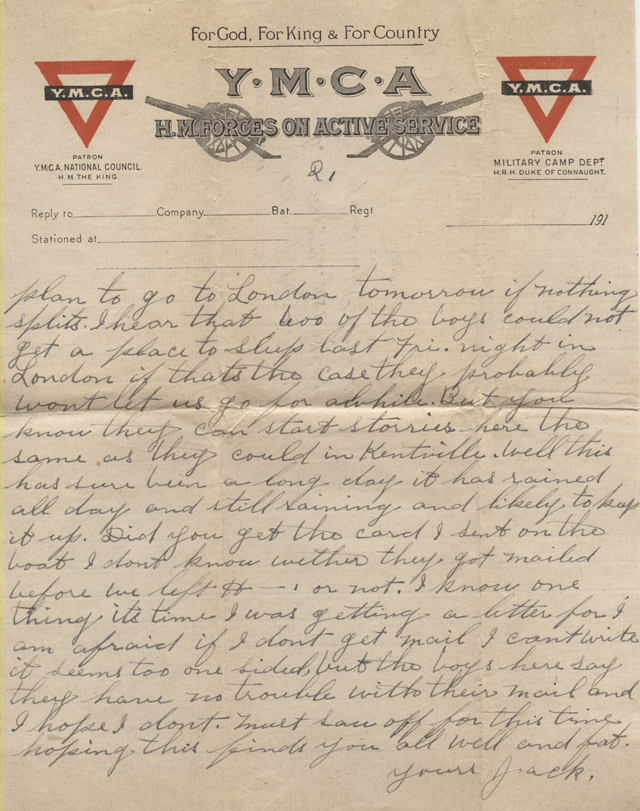 For God, For King & For Country
Y·M·C·A
H.M. FORCES ON ACTIVE SERVICE
Y.M.C.A.
PATRON
Y.M.C.A. NATIONAL COUNCIL.
H.M. THE KING.
Y.M.C.A.
PATRON
MILITARY CAMP DEPT.
H.R.H. DUKE OF CONNAUGHT.
2,
Reply to Company Bat. Regt
191
Stationed at
plan to go to London tomorrow if nothing
splits. I hear that 600 of the boys could not
get a place to sleep last Fri. night in
London if thats the case they probably
wont let us go for awhile. But you
know they can start storries here the
same as they could in Kentville. Well this
has sure been a long day it has rained
all day and still raining and likely to keep
it up. Did you get the card I sent on the
boat I dont know wether they got mailed
before we left H— or not. I know one
thing its time I was getting a letter for I
am afraid if I dont get mail I cant write
it seems too one sided, but the boys here say
they have no trouble with their mail and
I hope I dont. Must saw off for this time
hoping this finds you all well and fat.
yours Jack.